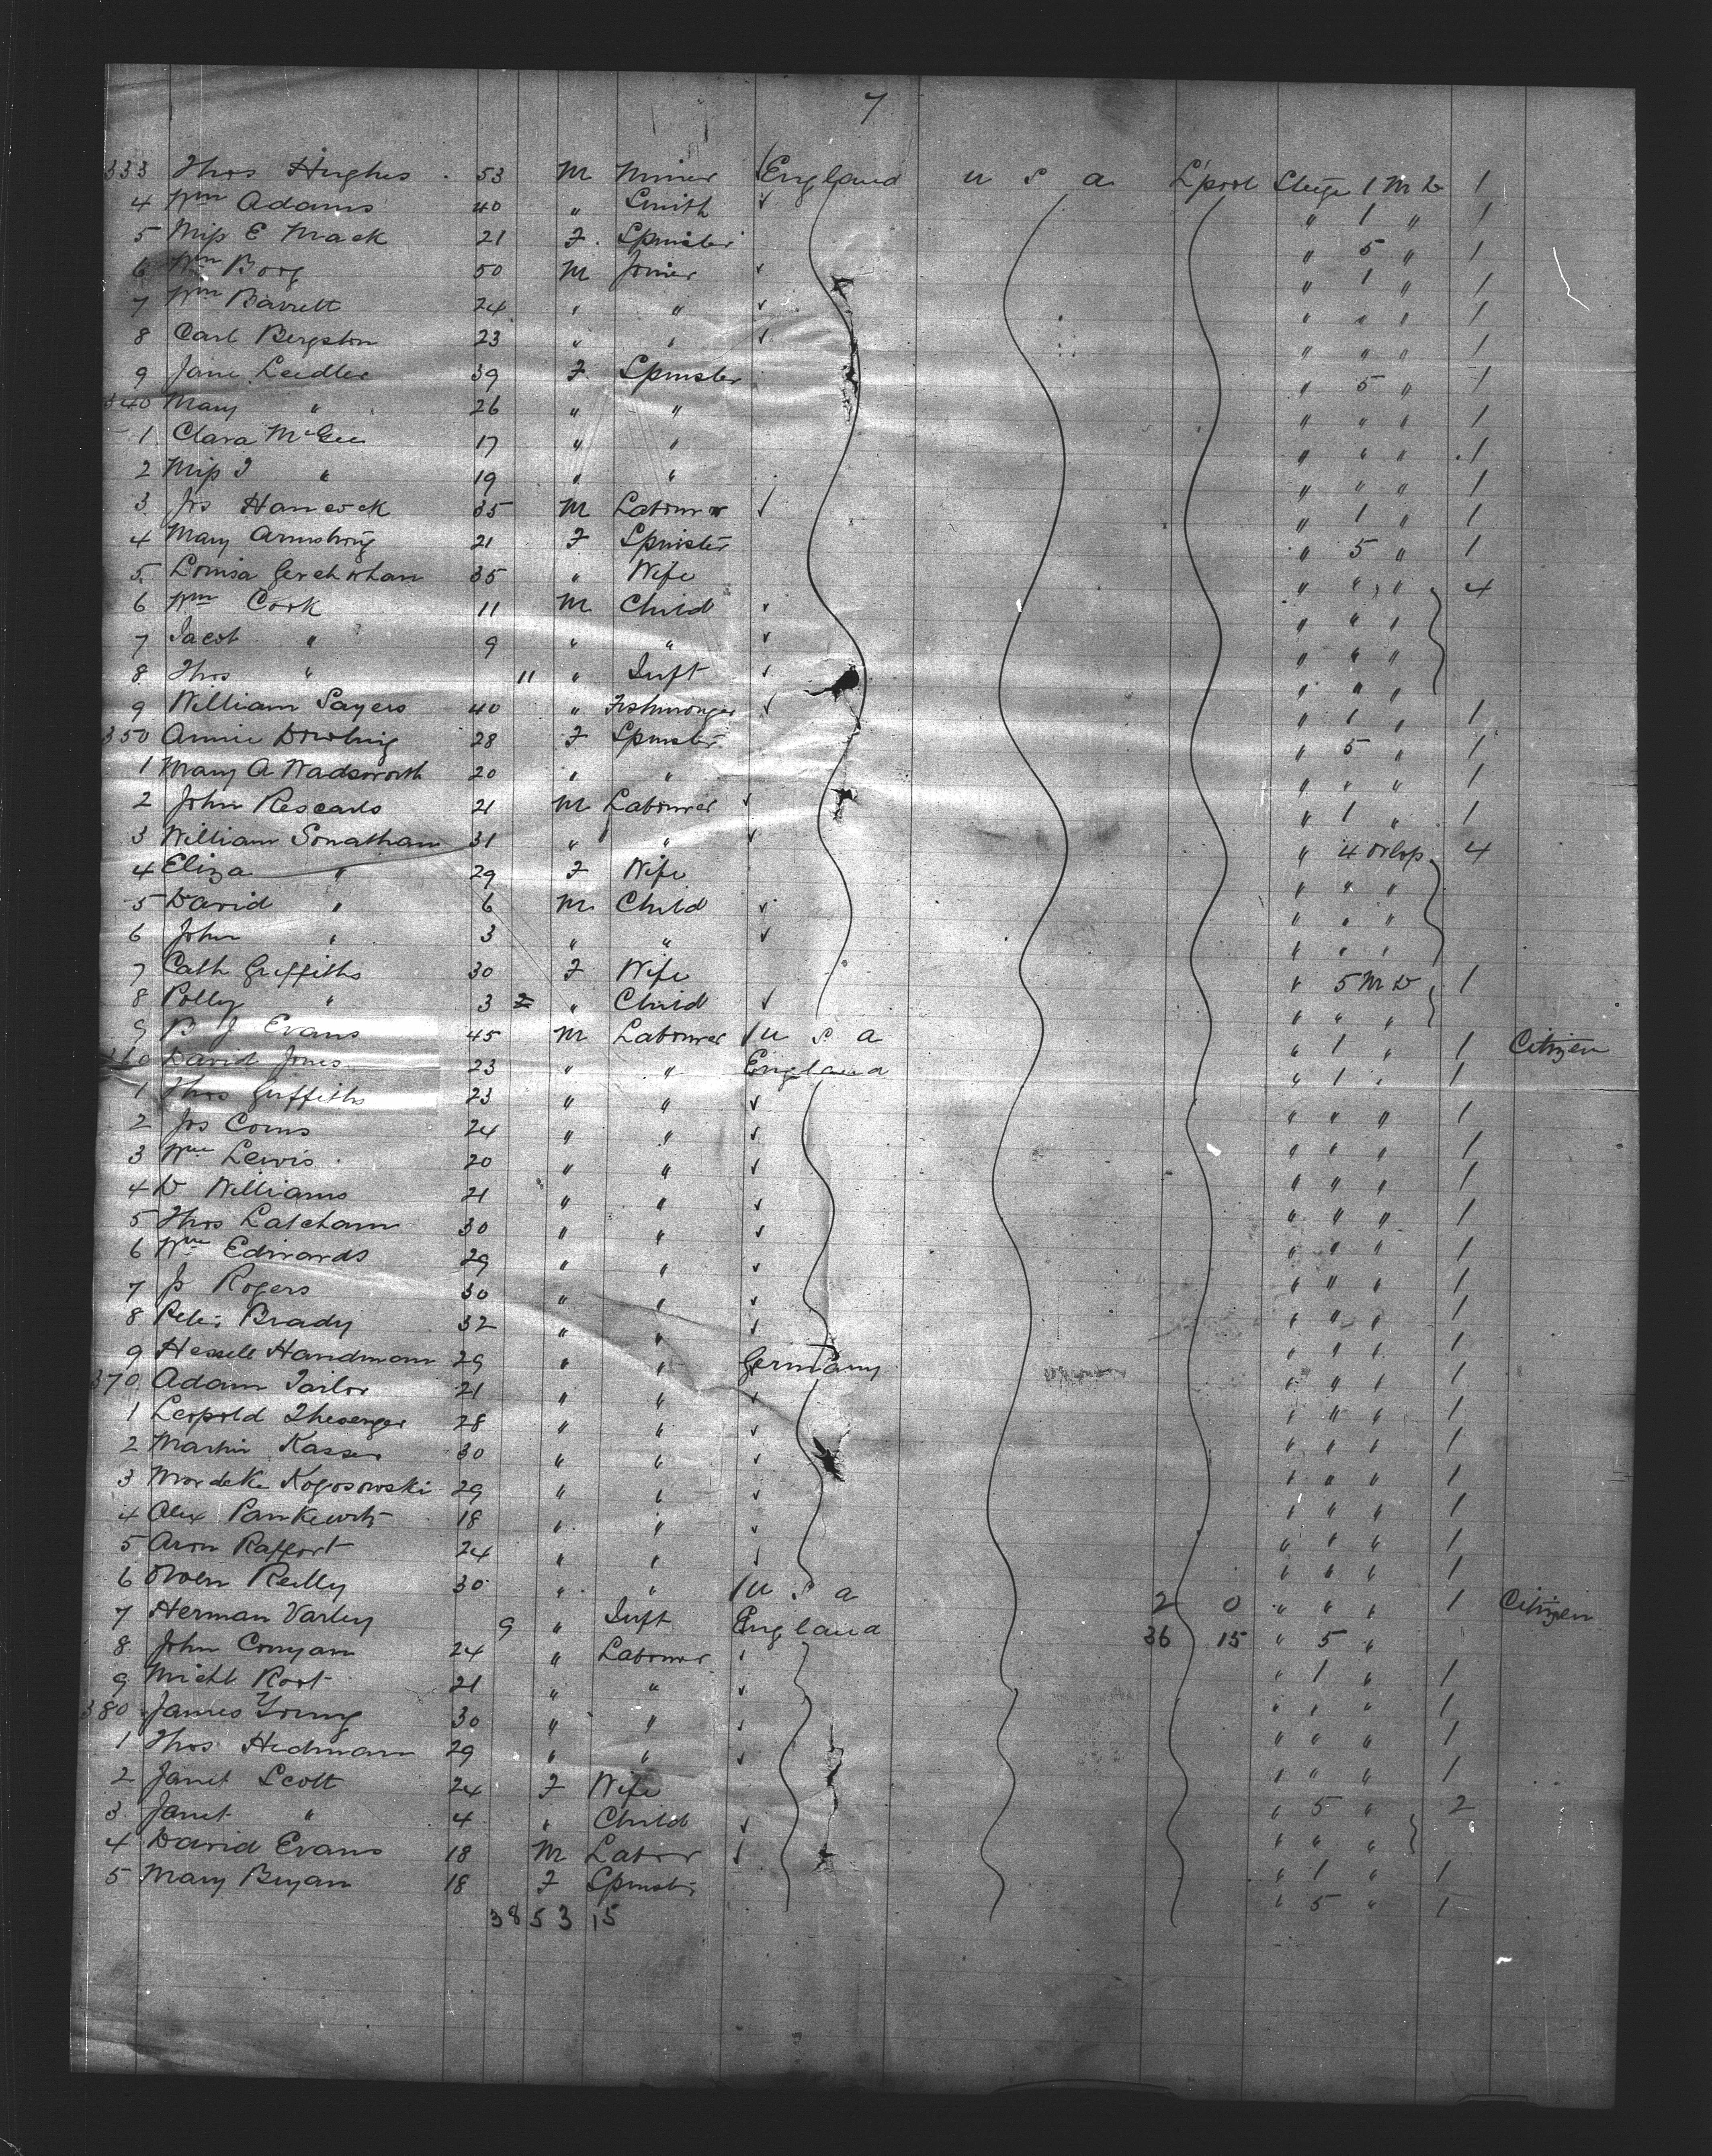 7
333 Thos Hughes 53 M Miner England U S A L'pool Steige 1 M D 1
4 Wm Adams 40 " Smith " 1 " 1
5 Miss E Mack 21 F Spinster " 5 " 1
6 Wm Borg 50 M Joiner " 1 " 1
7 Wm Barrett 24 " " " " " 1
8 Carl Bergston 23 " " " " " 1
9 Jane Leedler 39 F Spinster " 5 " 1
340 Mary " 26 " " " " " 1
1 Clara McGee 17 " " " " " 1
2 Miss " 19 " " " " " 1
3 Jos Hancock 35 M Labourer " 1 " 1
4 Mary Armstrong 21 F Spinster " 5 " 1
5 Louisa 35 " Wife " " " 4
6 Wm Cook 11 M Child " " "
7 Jacob " 9 " " " " "
8 Thos " 11 " Inft " " "
9 William Sayers 40 " Fishmonger " 1 " 1
350 Annie Dowling 28 F Spinster " 5 " 1
1 Mary A Wadsworth 20 " " " " " 1
2 John 21 M Labourer " 1 " 1
3 William Jonathan 31 " " " 4 Orlop 4
4 Eliza " 29 F Wife " " "
5 David " 6 M Child " " "
6 John " 3 " " " " "
7 Cath Griffiths 30 F Wife " 5 M D 1
8 Polly " 3 " Child " " "
9 B J Evans 45 M Labourer U S A " 1 " 1 Citizen
360 David Jones 23 " " England " 1 " 1
1 Thos Griffiths 23 " " " " " 1
2 Jos Corns 24 " " " " " 1
3 Wm Lewis 20 " " " " " 1
4 D Williams 21 " " " " " 1
5 Thos Latcham 30 " " " " " 1
6 Wm Edwards 29 " " " " " 1
7 Js Rogers 30 " " " " " 1
8 Peter Brady 32 " " " " " 1
9 Hessele Handmann 29 " " Germany " " " 1
370 Adam Tailor 21 " " " " " 1
1 Leopold 28 " " " " " 1
2 Martin Kasser 30 " " " " " 1
3 Mordeke Kogosowski 29 " " " " " 1
4 Alex Pankewitz 18 " " " " " 1
5 Aron Raffort 24 " " " " " 1
6 Owen Reilly 30 " " U S A 2 0 " " " 1 Citizen
7 Herman Varley 9 " Inft England 36 15 " 5 "
8 John Conyan 24 " Labourer " 1 " 1
9 Michl Root 21 " " " " " 1
380 James Young 30 " " " " " 1
1 Thos Hedmann 29 " " " " " 1
2 Janet Scott 24 F Wife " 5 " 2
3 Janet " 4 " Child " " "
4 David Evans 18 M Labor " 1 " 1
5 Mary Bryan 18 F Spinster " 5 " 1
38 53 15